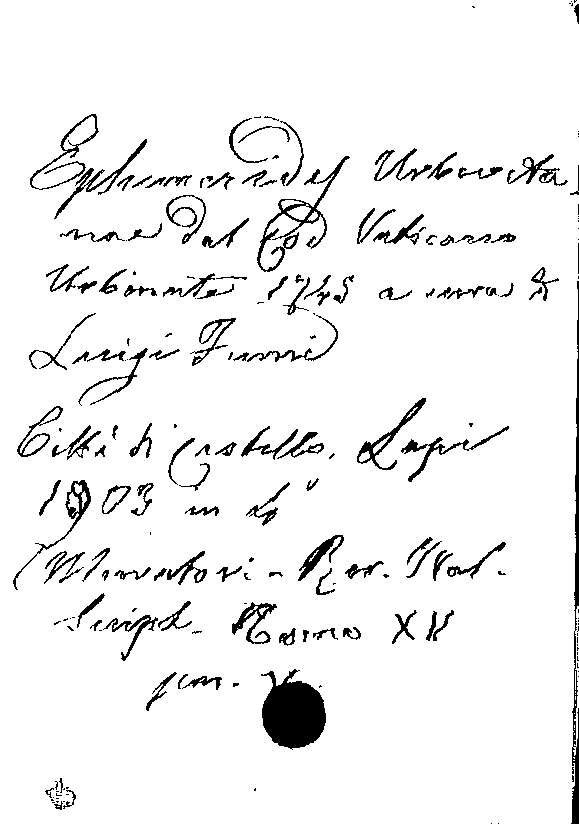 Ephemerides Urbeveta
nae dal Cod Vaticano
Urbinate 1745 a cura di
Luigi Fumi
Città di Castello. Lapi
1903 in 4º
(Muratori - Rer. Ital.
Script. Tomo XV